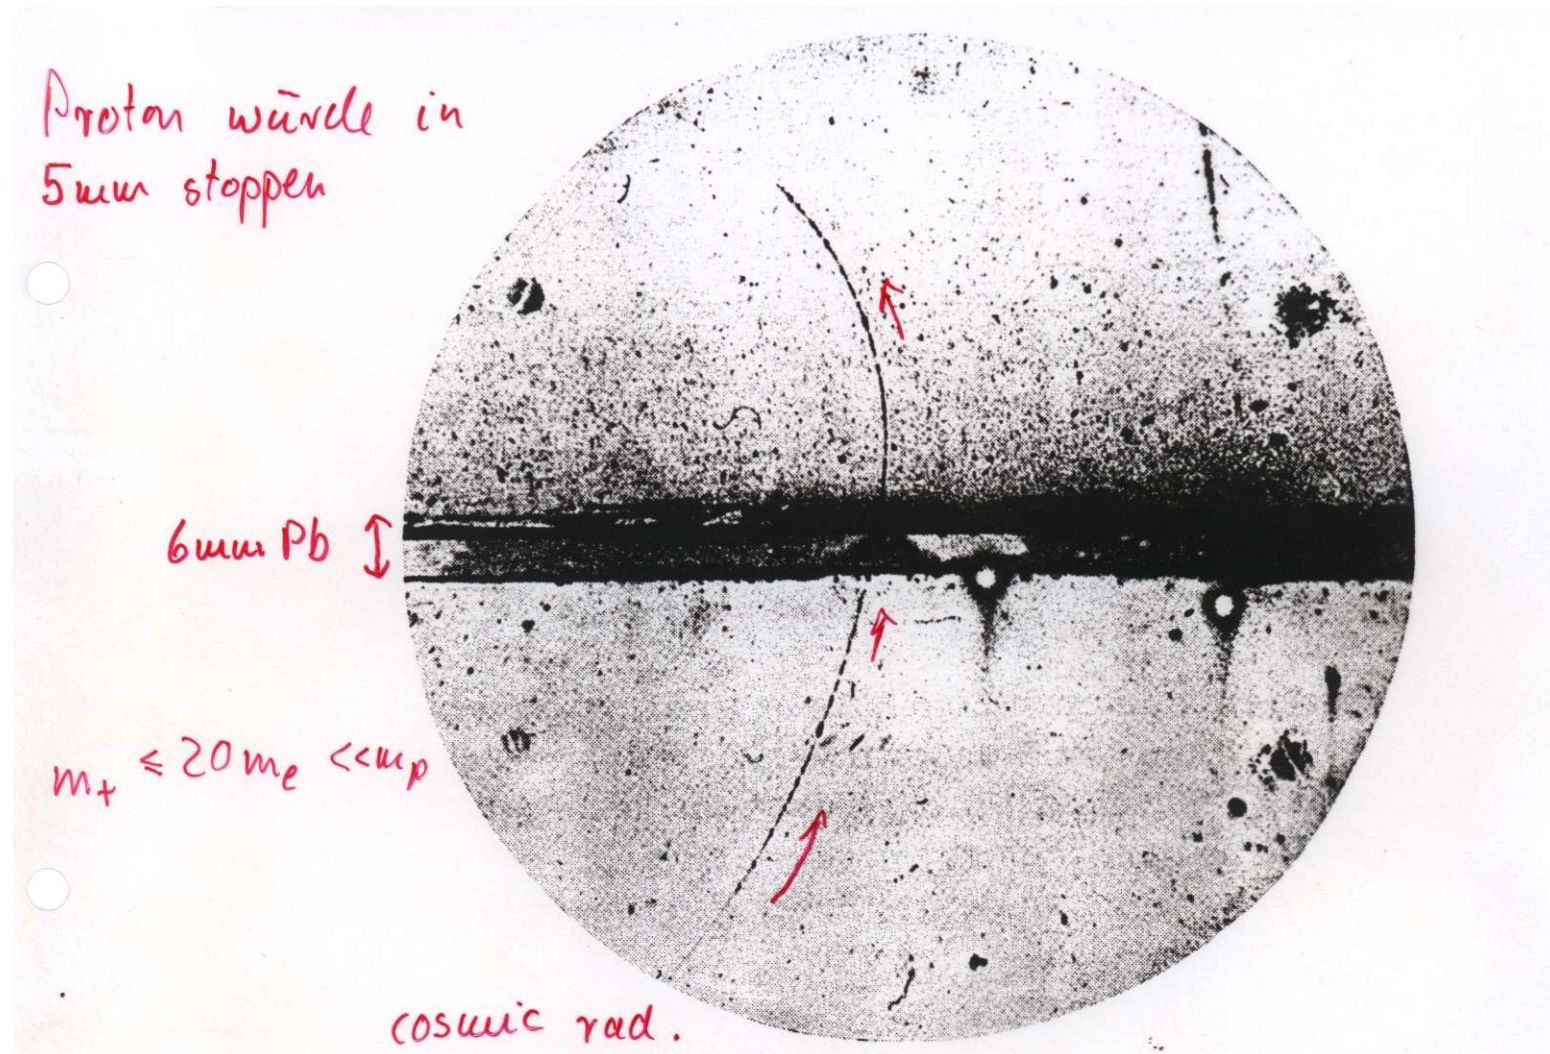 Proton würde in
5mm stoppen
6mm Pb
m₊ ≤ 20me <<mp
cosmic rad.